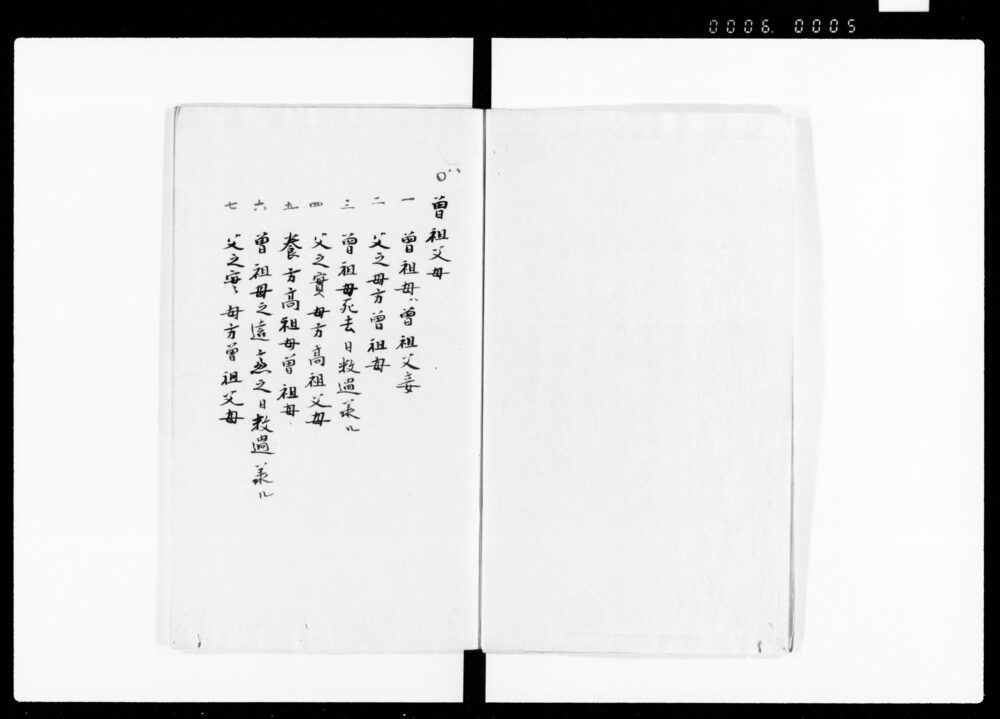 0006. 0005
曽祖父母
一 曽祖母ハ曽祖父妾
二 父之母方曽祖母
三 曽祖母死去日数過承ル
四 父之實母方高祖父母
五 養方高祖母曽祖母
六 曽祖母之遠慮之日数過承ル
七 父之實母方曽祖父母